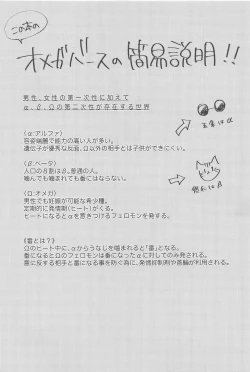 この本の
オメガバースの簡易説明!!
男性、女性の第一次性に加えて
α、β、Ωの第二次性が存在する世界
〈α:アルファ〉
容姿端麗で能力の高い人が多い。
遺伝子が優秀な反面、Ω以外の相手とは子供ができにくい。
〈β:ベータ〉
人口の8割はβ。普通の人。
噛んでも噛まれても番にはならない。
〈Ω:オメガ〉
男性でも妊娠が可能な希少種。
定期的に発情期(ヒート)がくる。
ヒートになるとαを惹きつけるフェロモンを発する。
《番とは?》
Ωのヒート中に、αからうなじを噛まれると「番」となる。
番になるとΩのフェロモンは番になったαに対してのみ発される。
意に反する相手と番になる事を防ぐ為に、発情抑制剤や首輪が利用される。